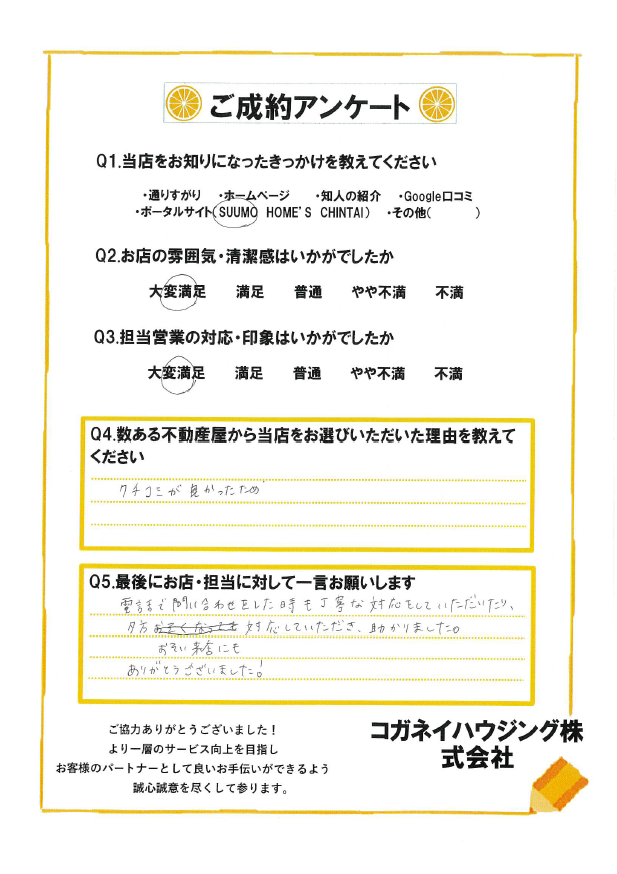 ご成約アンケート
Q1.当店をお知りになったきっかけを教えてください
・通りすがり ・ホームページ ・知人の紹介 ・Google口コミ
・ポータルサイト(SUUMO HOME'S CHINTAI) ・その他( )
Q2.お店の雰囲気・清潔感はいかがでしたか
大変満足 満足 普通 やや不満 不満
Q3.担当営業の対応・印象はいかがでしたか
大変満足 満足 普通 やや不満 不満
Q4.数ある不動産屋から当店をお選びいただいた理由を教えて
ください
クチコミが良かったため
Q5.最後にお店・担当に対して一言お願いします
電話で問い合わせをした時も丁寧な対応をしていただいたり、
夕方おそくなっても対応していただき、助かりました。
おそい来店にも
ありがとうございました!
ご協力ありがとうございました!
より一層のサービス向上を目指し
お客様のパートナーとして良いお手伝いができるよう
誠心誠意を尽くして参ります。
コガネイハウジング株
式会社